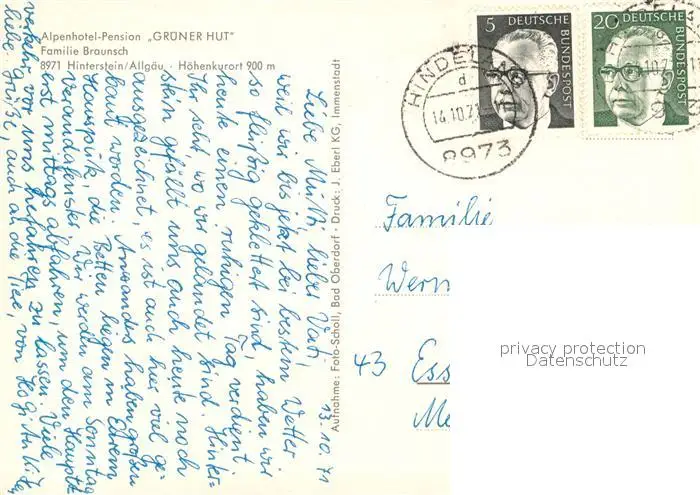 Alpenhotel-Pension „GRÜNER HUT"
Familie Braunsch
8971 Hinterstein/Allgäu · Höhenkurort 900 m
13.10.71
Liebe Mutti, lieber Vati,
weil wir bis jetzt bei bestem Wetter
so fleißig geklettert sind, haben wir
heute einen ruhigen Tag verdient.
Ihr seht, wo wir gelandet sind. Hinter-
stein gefällt uns auch heute noch
ausgezeichnet, es ist auch hier viel ge-
baut worden. Anwanders haben großen
Hausputz, die Betten liegen in Eurem
Verandafenster. Wir werden am Sonntag
erst mittags abfahren, um den Haupt-
verkehr vor uns herfahren zu lassen. Viele
liebe Grüße, auch an die von
Aufnahme: Foto-Scholl, Bad Oberdorf · Druck: J. Eberl KG, Immenstadt
5 DEUTSCHE BUNDESPOST
20 DEUTSCHE BUNDESPOST
HINDELANG
d
14.10.71
8973
Familie
Wern
43 Ess
Me
privacy protection
Datenschutz